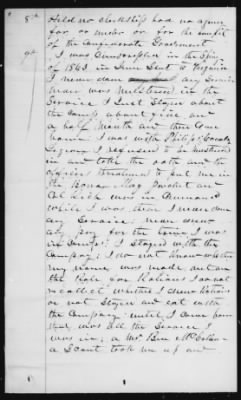 8th Held no clerkship had no agency
for or under or for the benefit
of the Confederate Government
9th I was Conscripted in the
of 1863 in June Sent to Virginia
I never done any Service
never was Mustered in the
Service I just stayed about
the Camp about five and
a half Month and then Come
home I was with Phillips Cavalry
Legion I refused to be mustered
in and take the oath and the
officers threatened to put me in
the
Col Rich was in Command
while I was thar I never done
any Service never drew
any pay for the time I was
in Camps I stayed with the
Company I do not know whether
my name was made out on
the Role for Rations I do not
recollect whether I drew Rations
or not Stayed and eat with
the Company until I come home
that was all the Service I
was in, a Mr Ben McCollum
a Scout took me up and